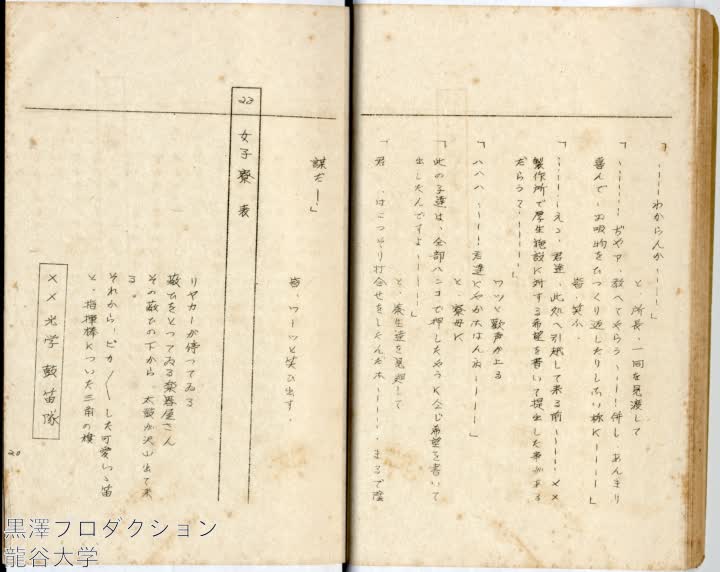 「……わからんか……」
と、所長、一同を見渡して
「……ぢやア、教へてやらう……併し、あんまり
喜んで、お吸物をひつくり返したりしない様に……」
皆、笑ふ。
「……えゝ、君達、此処へ引越して来る前……××
製作所で厚生施設に対する希望を書いて提出した事がある
だらうて……」
ワツと歓声が上る
「ハハハ……君達にやかなはんね……」
と　寮母に
「此の子達は、全部ハンコで押したやうに仝じ希望を書いて
出したんですよ……」
と、寮生達を見廻して
「君　、はこつそり打合せをしたんだね……まるで陰
謀だ―」
皆、ワーツと笑ひ出す。
23　女子寮　表
リヤカーが停つてゐる
蔽ひをとつてゐる楽器屋さん
その蔽ひの下から、太鼓が沢山出て来
る。
それから、ピカ〳〵した可愛いゝ笛
と、指揮棒についた三角の旗
××光学　鼓笛隊
20
黒澤プロダクション
龍谷大学